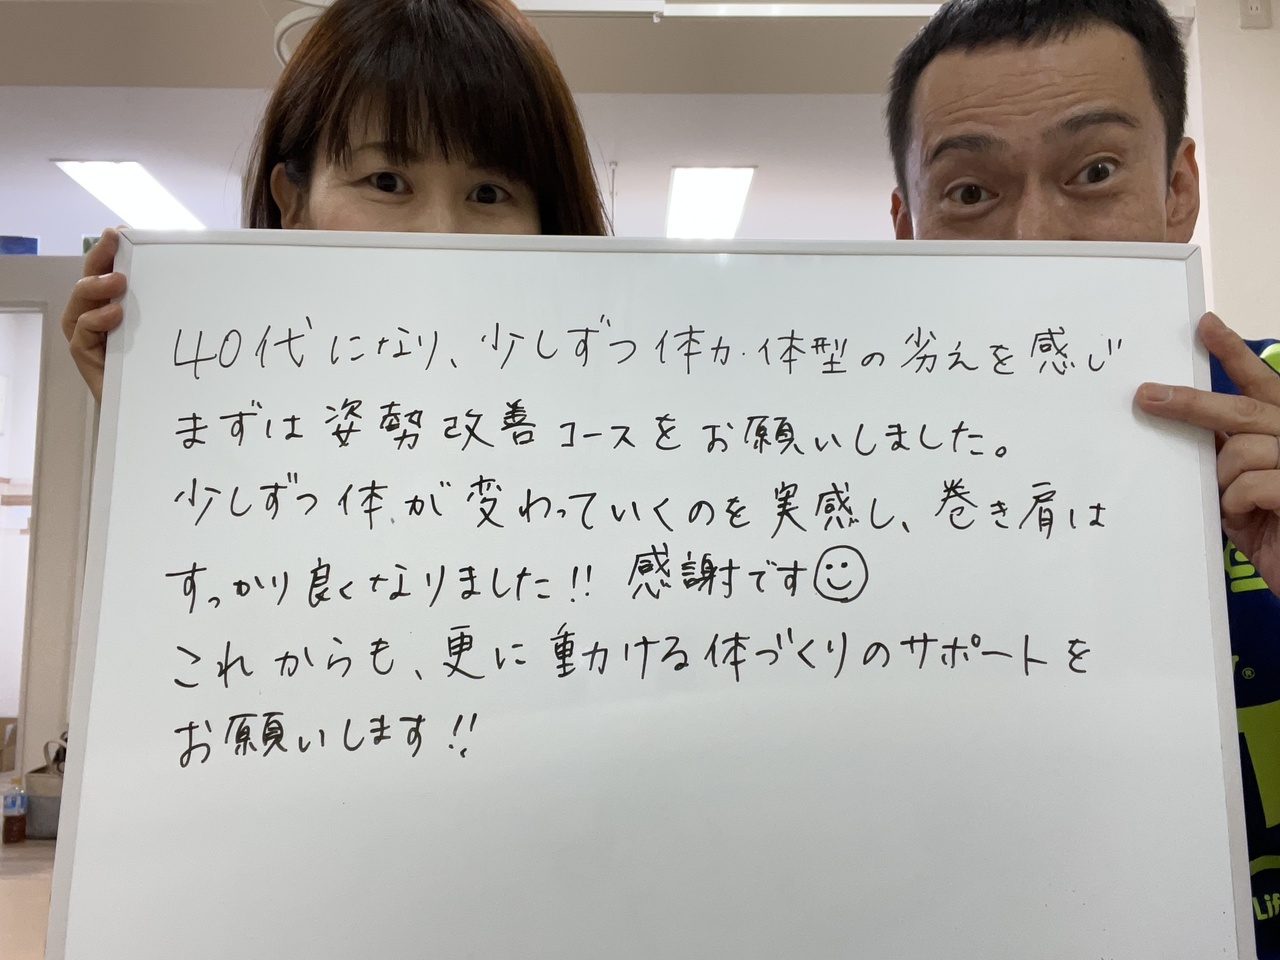 40代になり、少しずつ体力・体型の劣えを感じ
まずは姿勢改善コースをお願いしました。
少しずつ体が変わっていくのを実感し、巻き肩は
すっかり良くなりました!! 感謝です☺
これからも、更に動ける体づくりのサポートを
お願いします!!
®
Lif